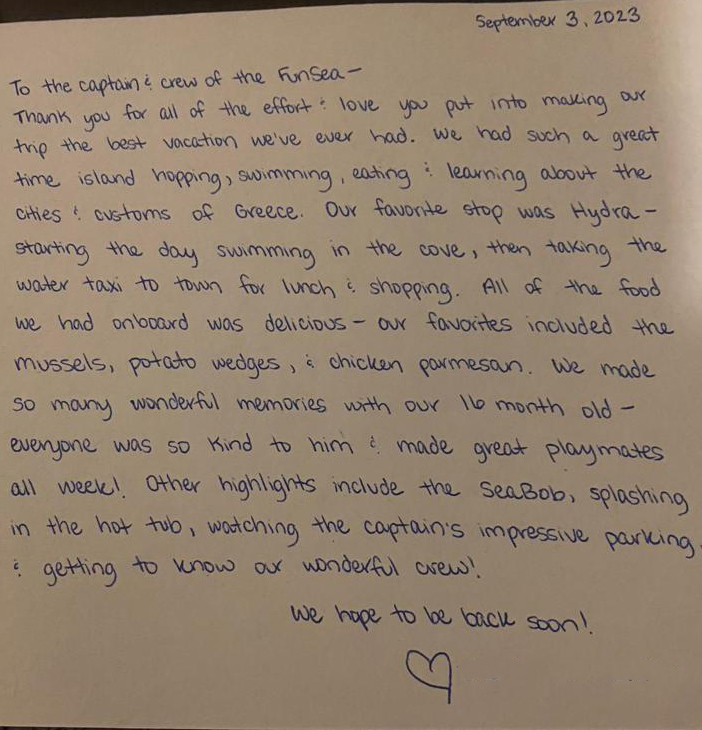 September 3, 2023
To the captain & crew of the FunSea -
Thank you for all of the effort & love you put into making our
trip the best vacation we've ever had. We had such a great
time island hopping, swimming, eating & learning about the
cities & customs of Greece. Our favorite stop was Hydra -
starting the day swimming in the cove, then taking the
water taxi to town for lunch & shopping. All of the food
we had onboard was delicious - our favorites included the
mussels, potato wedges, & chicken parmesan. We made
so many wonderful memories with our 16 month old -
everyone was so kind to him & made great playmates
all week! Other highlights include the SeaBob, splashing
in the hot tub, watching the captain's impressive parking
& getting to know our wonderful crew!
We hope to be back soon!